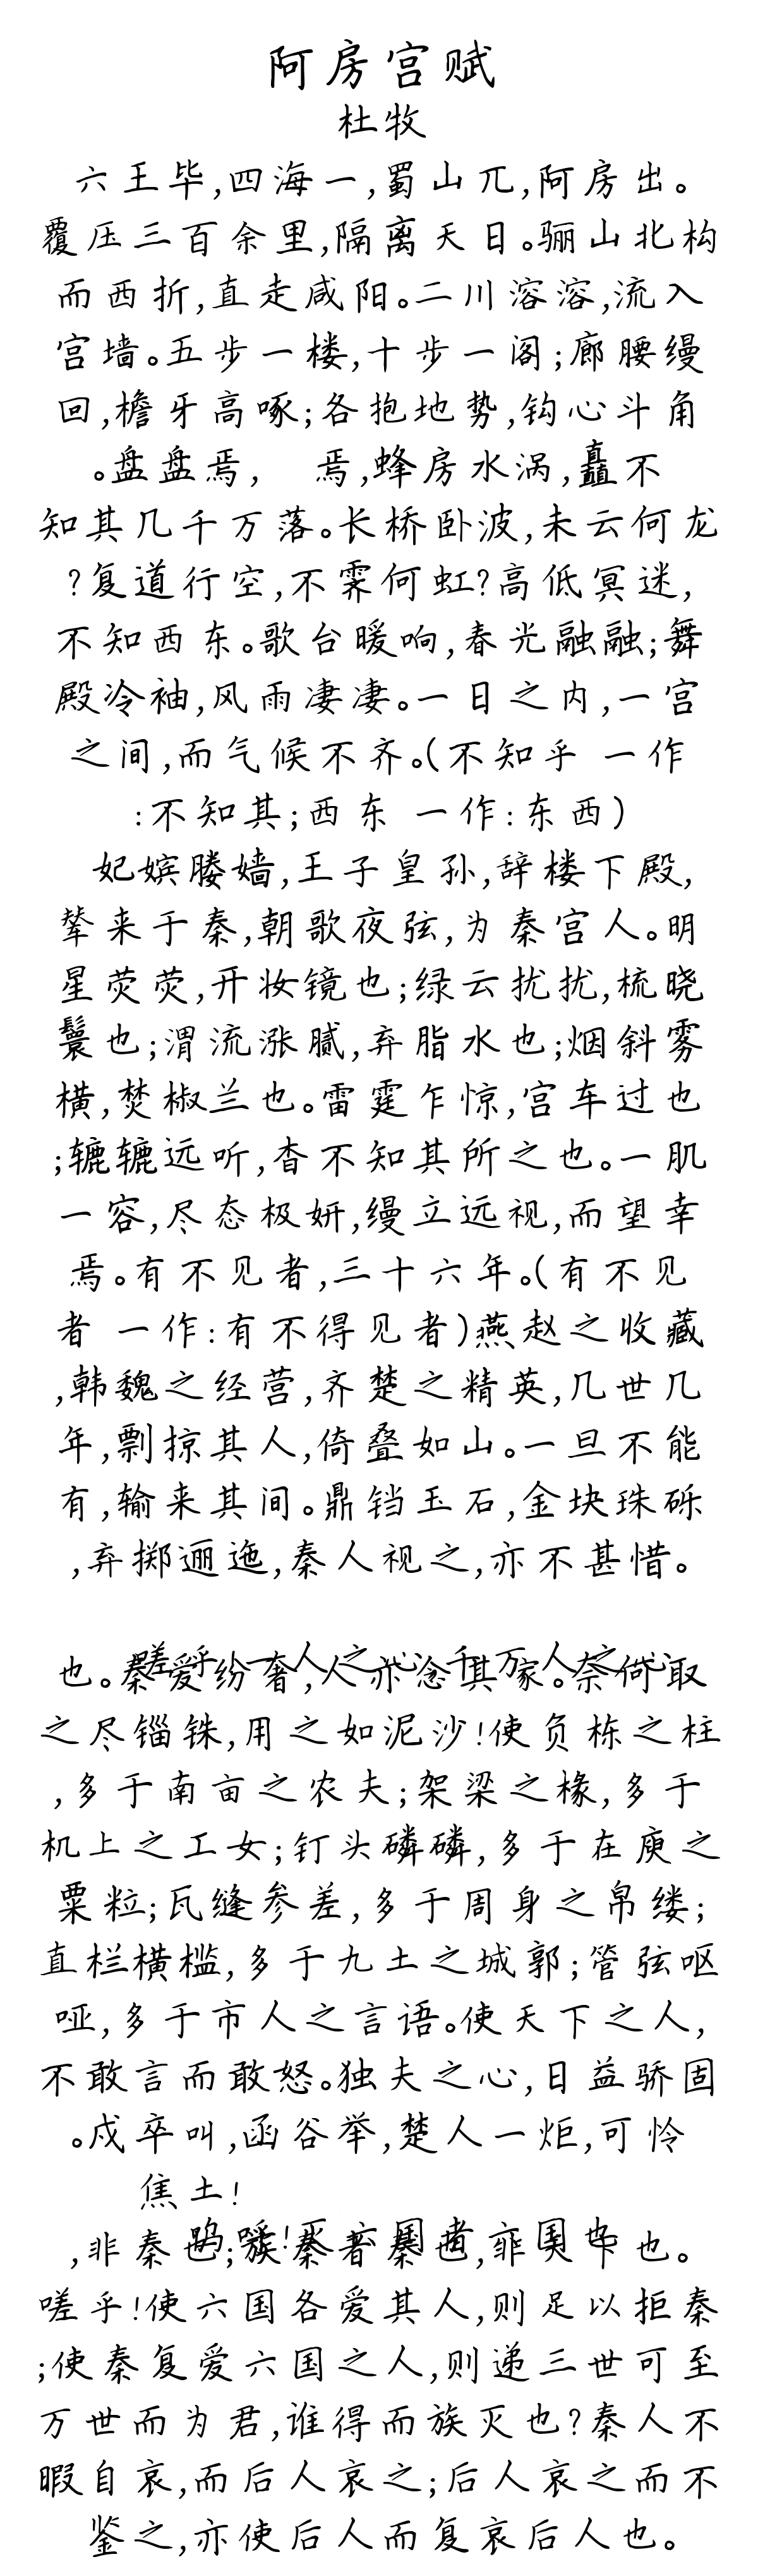 阿房宫赋
杜牧
六王毕,四海一,蜀山兀,阿房出。
覆压三百余里,隔离天日。骊山北构
而西折,直走咸阳。二川溶溶,流入
宫墙。五步一楼,十步一阁;廊腰缦
回,檐牙高啄;各抱地势,钩心斗角
。盘盘焉, 焉,蜂房水涡,矗不
知其几千万落。长桥卧波,未云何龙
?复道行空,不霁何虹?高低冥迷,
不知西东。歌台暖响,春光融融;舞
殿冷袖,风雨凄凄。一日之内,一宫
之间,而气候不齐。(不知乎 一作
:不知其;西东 一作:东西)
妃嫔媵嫱,王子皇孙,辞楼下殿,
辇来于秦,朝歌夜弦,为秦宫人。明
星荧荧,开妆镜也;绿云扰扰,梳晓
鬟也;渭流涨腻,弃脂水也;烟斜雾
横,焚椒兰也。雷霆乍惊,宫车过也
;辘辘远听,杳不知其所之也。一肌
一容,尽态极妍,缦立远视,而望幸
焉。有不见者,三十六年。(有不见
者 一作:有不得见者)燕赵之收藏
,韩魏之经营,齐楚之精英,几世几
年,剽掠其人,倚叠如山。一旦不能
有,输来其间。鼎铛玉石,金块珠砾
,弃掷逦迤,秦人视之,亦不甚惜。
嗟乎一人之心千万人之心
也。秦爱纷奢,人亦念其家。奈何取
之尽锱铢,用之如泥沙!使负栋之柱
,多于南亩之农夫;架梁之椽,多于
机上之工女;钉头磷磷,多于在庾之
粟粒;瓦缝参差,多于周身之帛缕;
直栏横槛,多于九土之城郭;管弦呕
哑,多于市人之言语。使天下之人,
不敢言而敢怒。独夫之心,日益骄固
。戍卒叫,函谷举,楚人一炬,可怜
焦土!
呜呼!灭六国者六国也
,非秦也;族秦者秦也,非天下也。
嗟乎!使六国各爱其人,则足以拒秦
;使秦复爱六国之人,则递三世可至
万世而为君,谁得而族灭也?秦人不
暇自哀,而后人哀之;后人哀之而不
鉴之,亦使后人而复哀后人也。